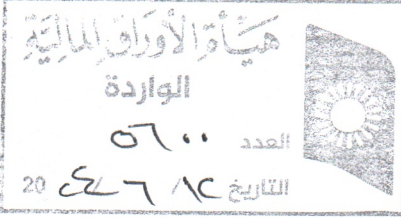 هيأة الأوراق المالية
الواردة
العدد ٥٦٠٠
التاريخ ١٢/ ٦ / ٢٤ 20